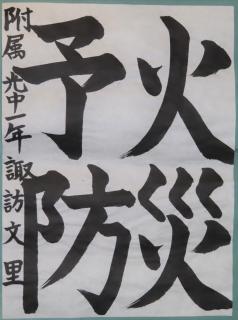 火災
予防
附属光中一年 諏訪文里